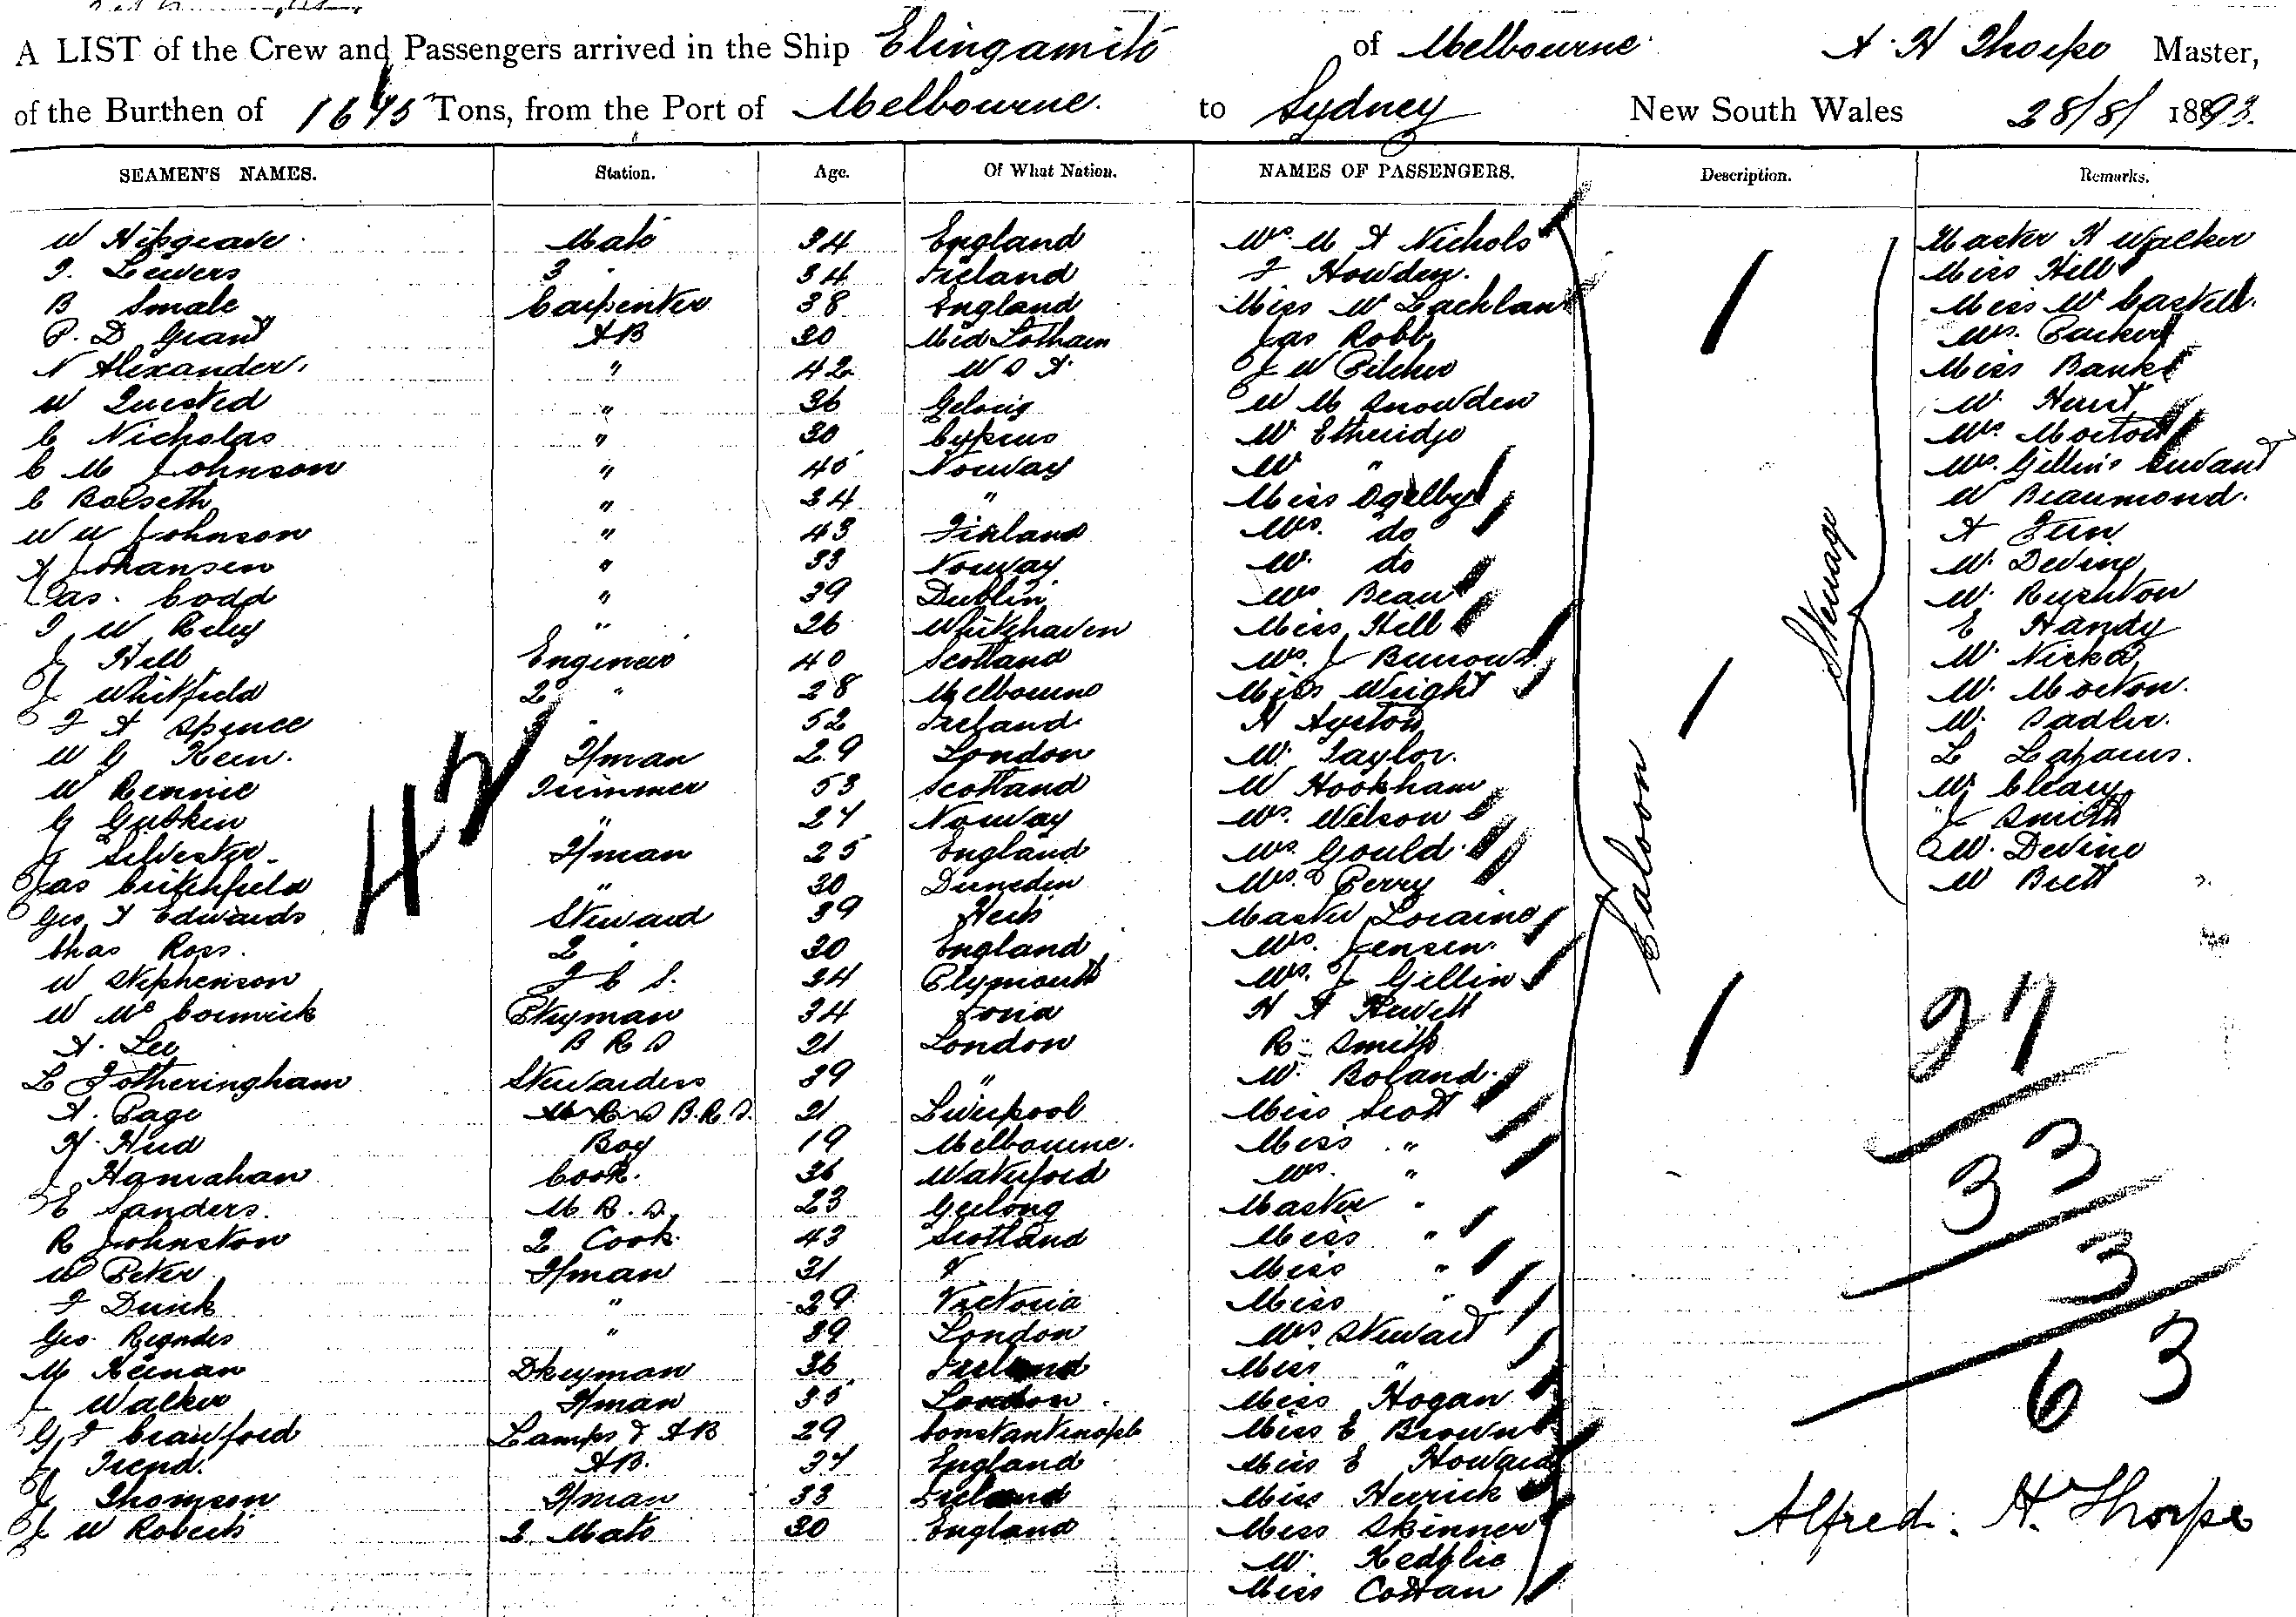 A LIST of the Crew and Passengers arrived in the Ship Elingamite of Melbourne A. H Thorpe Master,
of the Burthen of 1675 Tons, from the Port of Melbourne. to Sydney New South Wales 28/8/1893.
SEAMEN'S NAMES. Station. Age. Of What Nation. NAMES OF PASSENGERS. Description. Remarks.
W Hipgrave Mate 34 England Mrs. M A Nichols Master H Walker
T. Lewers 3 " 34 Ireland F Howden. Miss Hill
B Smale Carpenter 38 England Miss McLachlan Miss McCaskell.
P. D Grant AB 30 Mid Lothain Jas Robb Mrs. Packer
N Alexander. " 42 W S A. J W Pilcher Miss Banks
W Quested " 36 W M Snowden Mr. Hewit
C Nicholas " 30 Cyprus Mr Etheridge Mrs. Morton
C M Johnson " 45 Norway Mr " Mrs. Gillin's Servant
C Bolseth " 34 " Miss Ogelby Mr Beaumond.
W W Johnson " 43 Finland Mrs. do A
A Johansen " 33 Norway Mr. do Mr. Devine
Jas. Codd " 39 Dublin Mrs Bean Mr. Rushton
T W Riley " 26 Whitehaven Miss Hill E Handy
J Hill Engineer 40 Scotland Mrs. J Burrows Mr.
J Whitfield 2 " 28 Melbourne Miss Wright Mr. Morton.
T A Spence 3 " 52 Ireland H Ayeton Mr. Sadler.
W G Keen. F/man 29 London Mr. Taylor. L Lazarus.
W Rennie Trimmer 53 Scotland Mr Hookham Mr. Cleary
G Gubkin " 27 Norway Mrs. Wilson J Smith
J Silvester F/man 25 England Mrs. Gould. Mr. Devine
Jas Critchfield " 30 Duneden Mrs. Perry Mr Brett
Geo A Edwards Steward 39 Herts Master Loraine
Chas Ross. 2 " 30 England Mrs. Jensen.
W Stephenson F C S. 34 Plymouth Mrs. J Gillin
W McCormick P/keyman 34 Iona H A Hewett
A. Lee B R S 21 London R. Smith
L Fotheringham Stewardess 39 " Mr. Boland.
A. Page B.R.S. 21 Liverpool Miss Scott
H. Hud Boy 19 Melbourne. Miss "
J Hanrahan Cook. 36 Waterford Mrs. "
E Sanders. M B. S. 23 Geelong Master "
R Johnston 2 Cook 43 Scotland Miss "
W Peter F/man 31 " Miss "
F Dunk " 29 Victoria Miss "
Geo. " 39 London Mrs Stewart
M Keenan D/keyman 36 Ireland Miss "
J Walker F/man 35 London. Miss Hogan
G F Crawford Lamps & AB 29 Constantinople Miss E Brown
J Trend. AB. 37 England Miss E Howard
J Thomson F/man 33 Ireland Miss Herrick
J W Roberts 2 Mate 30 England Miss Skinner
Mr. Kedglie
Miss Cottan
42
Saloon
Steerage
27
33
3
63
Alfred. H. Thorpe